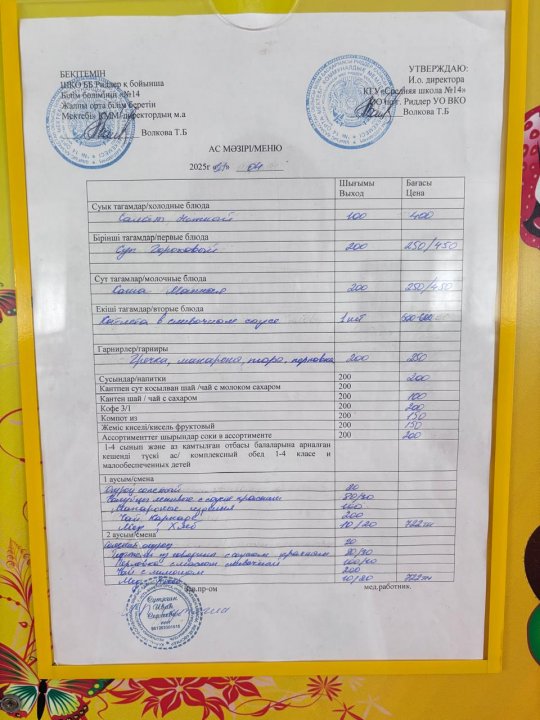 БЕКІТЕМІН
ШКО ББ Риддер к бойынша
Білім бөлімінің «№14
Жалпы орта білім беретін
Мектебі» КММ директордың м.а
Волкова Т.Б
УТВЕРЖДАЮ:
И.о. директора
КГУ «Средняя школа №14»
ОО по г. Риддер УО ВКО
Волкова Т.Б
АС МӘЗІРІ/МЕНЮ
2025г 04
Шығымы Выход
Бағасы Цена
Суык тағамдар/холодные блюда
Салат Нежный 100 400
Бірінші тағамдар/первые блюда
Суп Гороховый 200 250/450
Сүт тағамлар/молочные блюда
Каша Манная 200 250/450
Екіші тағамдар/вторые блюда
Котлета в сливочном соусе 1 шт
Гарнирлер/гарниры
Гречка, макароны, пюре, перловка 200 250
Сусындар/напитки 200 200
Кантпен сут косылван шай /чай с молоком сахаром 200
Кантен шай / чай с сахаром 200 100
Кофе 3/1 200 200
Компот из 200 150
Жеміс киселі/кисель фруктовый 200 150
Ассортименттег шырындар соки в ассортименте 200 200
1-4 сынып және аз камтылған отбасы балаларына арналған
кешенді түскі ас/ комплексный обед 1-4 класе и
малообеспеченных детей
1 ауысым/смена
Огурец соленый 20
с соусом красным 80/30
Макаронные изделия 100
Чай Каркаде 200
Хлеб 10/20 722тг
2 ауысым/смена
огурец 20
с соусом красным 80/30
Перловка с маслом сливочным
Чай с лимоном 200
10/20 722тг
Зав.пр-ом
мед.работник.